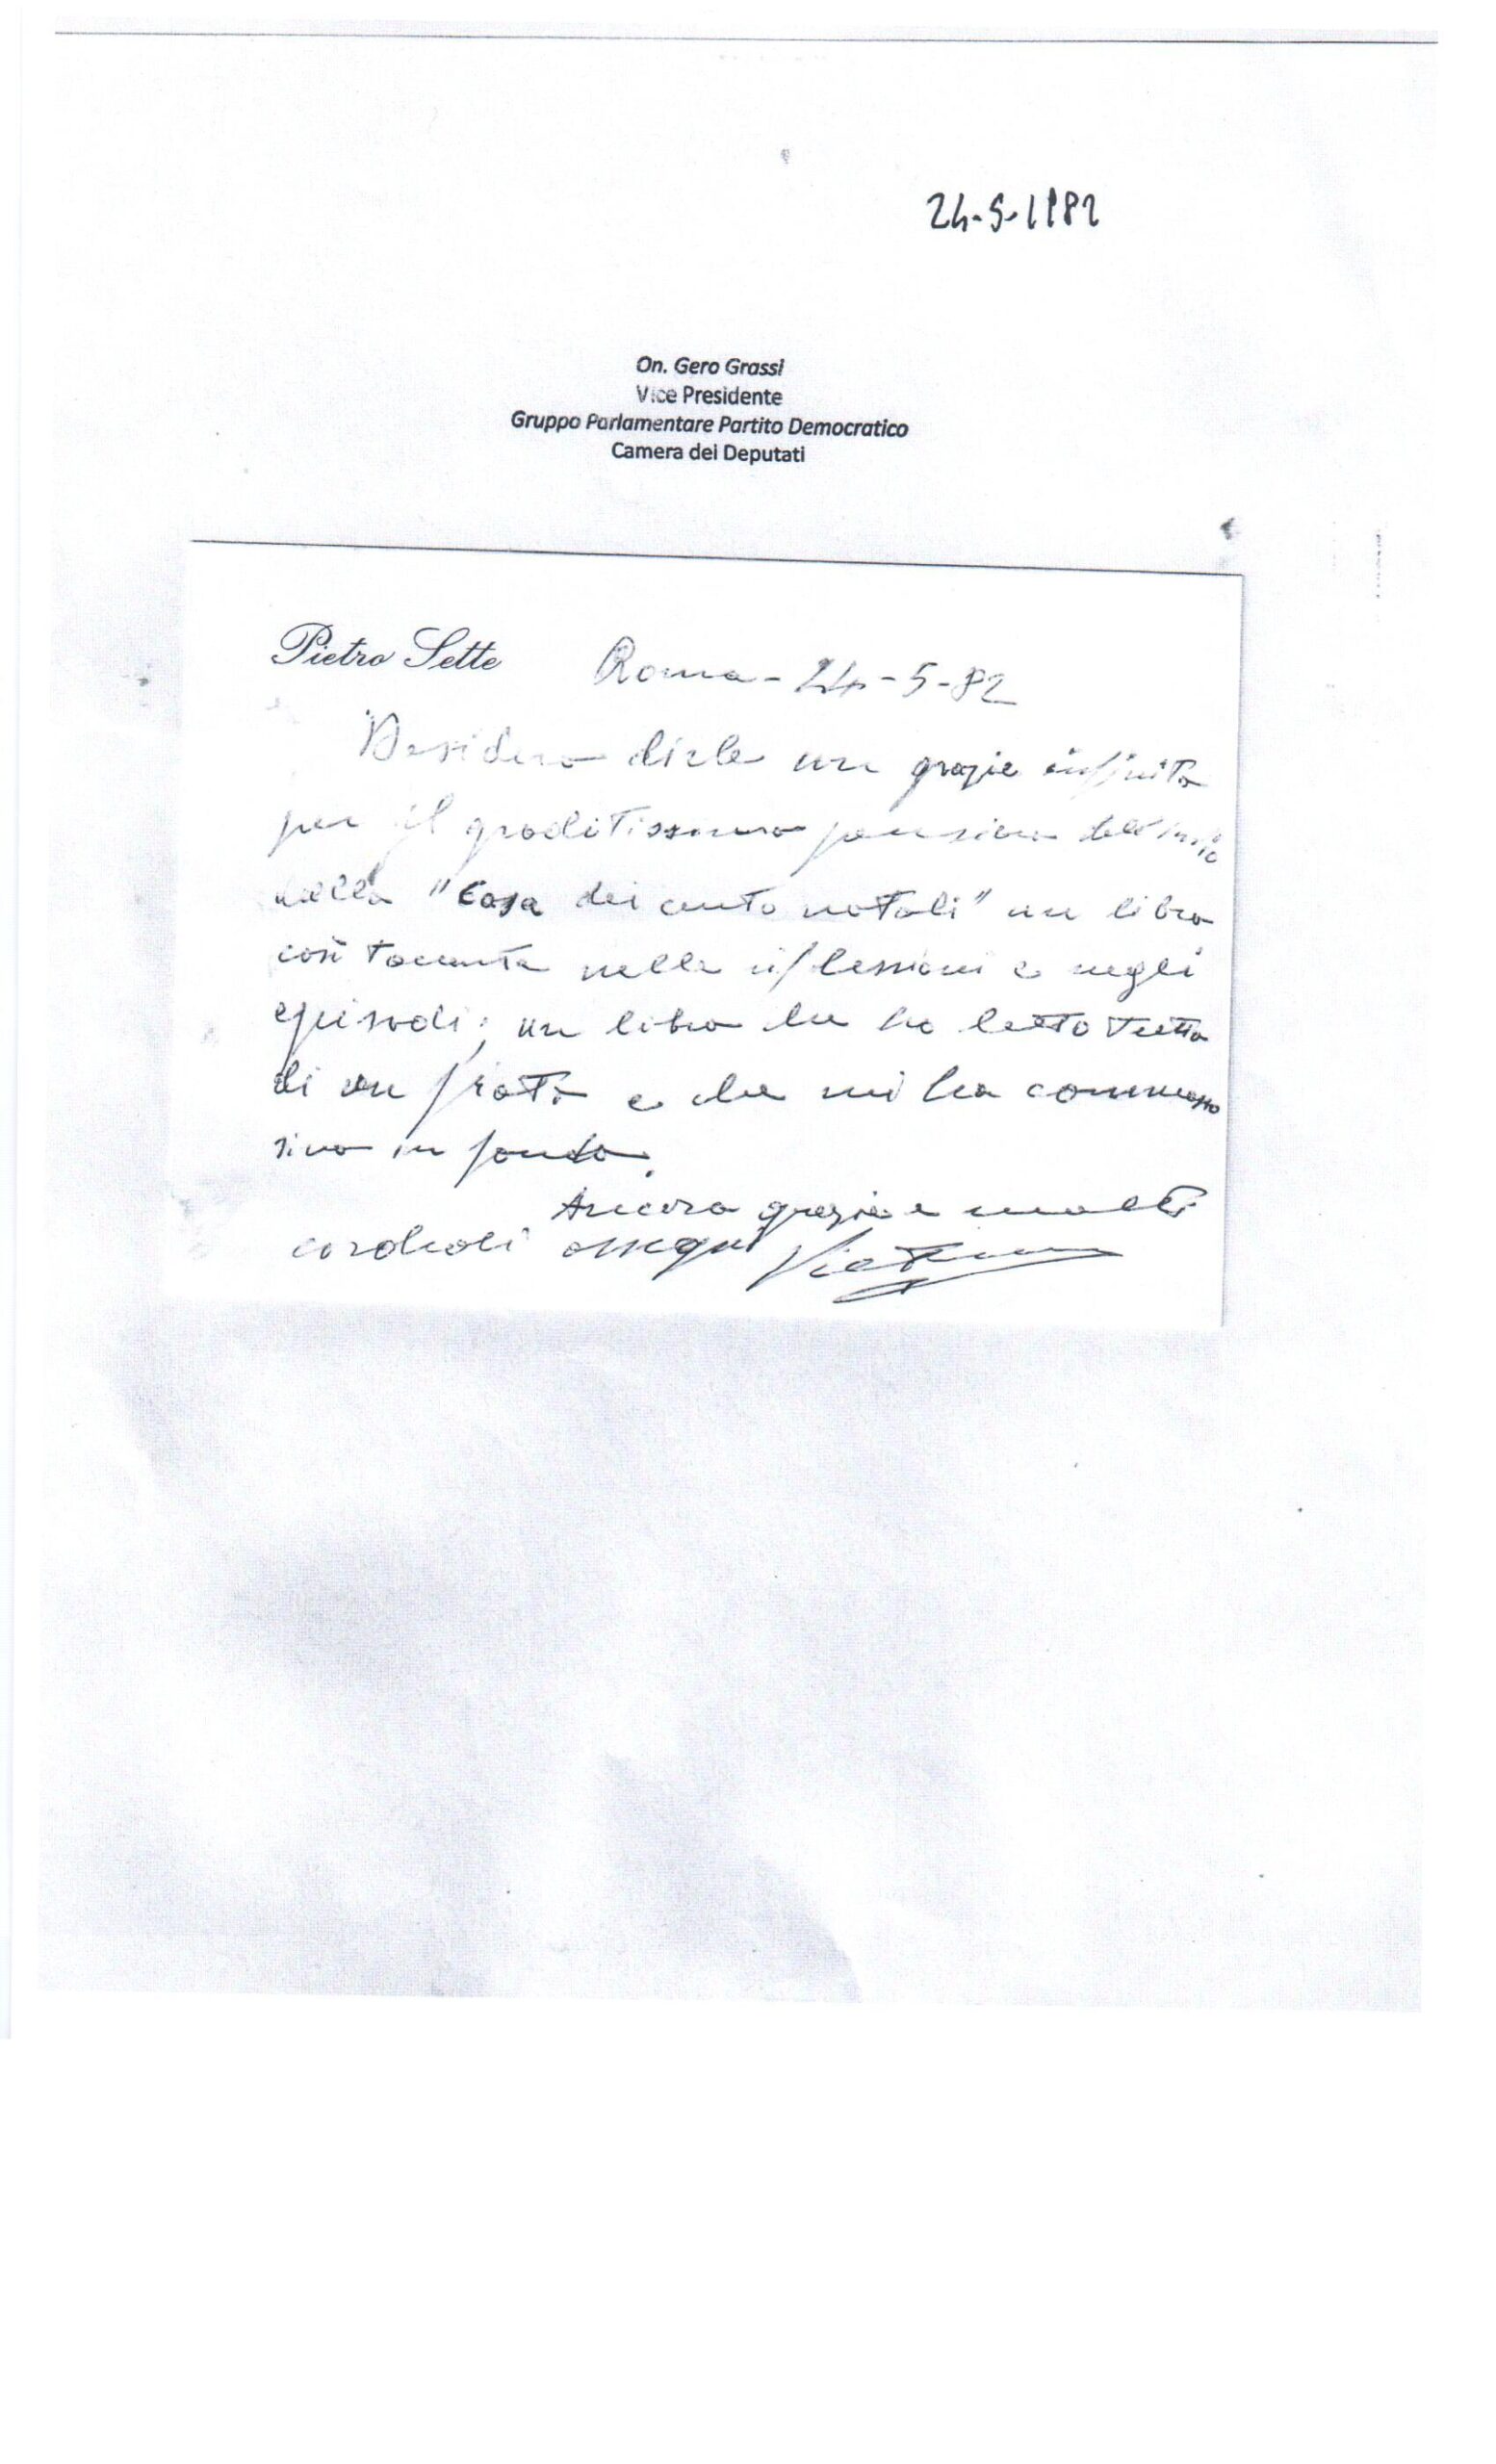 24-5-1982
On. Gero Grassi
Vice Presidente
Gruppo Parlamentare Partito Democratico
Camera dei Deputati
Pietro Sette Roma - 24-5-82
Desidero dirle un grazie infinito
per il graditissimo pensiero dell'invio
della "Casa dei cento natali" un libro
così toccante nelle riflessioni e negli
episodi; un libro che ho letto tutto
di un fiato e che mi ha commosso
sino in fondo.
Ancora grazie e molti
cordiali ossequi